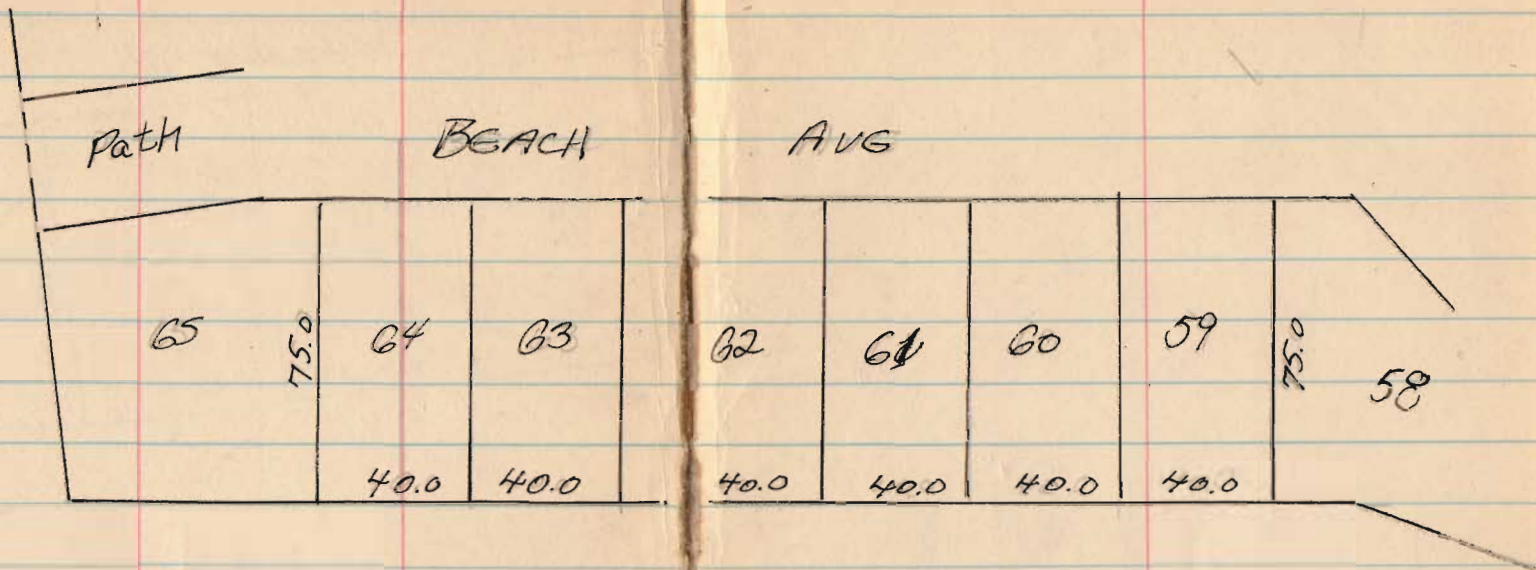 Path BEACH AVE
65 75.0 64 63 62 61 60 59 75.0 58
40.0 40.0 40.0 40.0 40.0 40.0